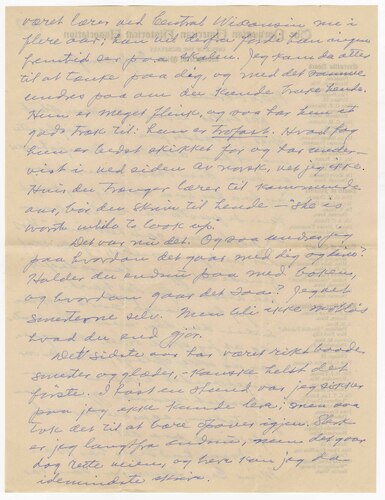 været lærer ved Central Wisconsin nu i
flere aar,
fremtid der paa skolen. Jeg kom da atter
til at tænke paa dig, og med det samme
undres paa om du kunde bruke hende.
Hun er meget flink, og saa har hun et
godt træk til: hun er trofast. Hvad fag
hun er bedst skikket for og har under-
vist i ved siden av norsk, vet jeg ikke.
Hvis du trænger lærer til kommende
aar, bør du skrive til hende – she is
worth while to look up.
Det var nu det. Og saa undres jeg
paa hvordan det gaar med dig og
Holder du endnu paa med boken,
og hvordan gaar det saa? Jeg vet
smerterne selv. Men bli ikke motløs
hvad du end gjør.
Det sidste aar har været rikt baade
smerter og glæder, – kanske helst det
første. I høst en stund var jeg sikker
paa jeg ikke kunde leve, men saa
tok det til at bære opover igjen. Sterk
er jeg langtfra endnu, men det gaar
dog rette veien, og her kan jeg da
idetmindste skrive.